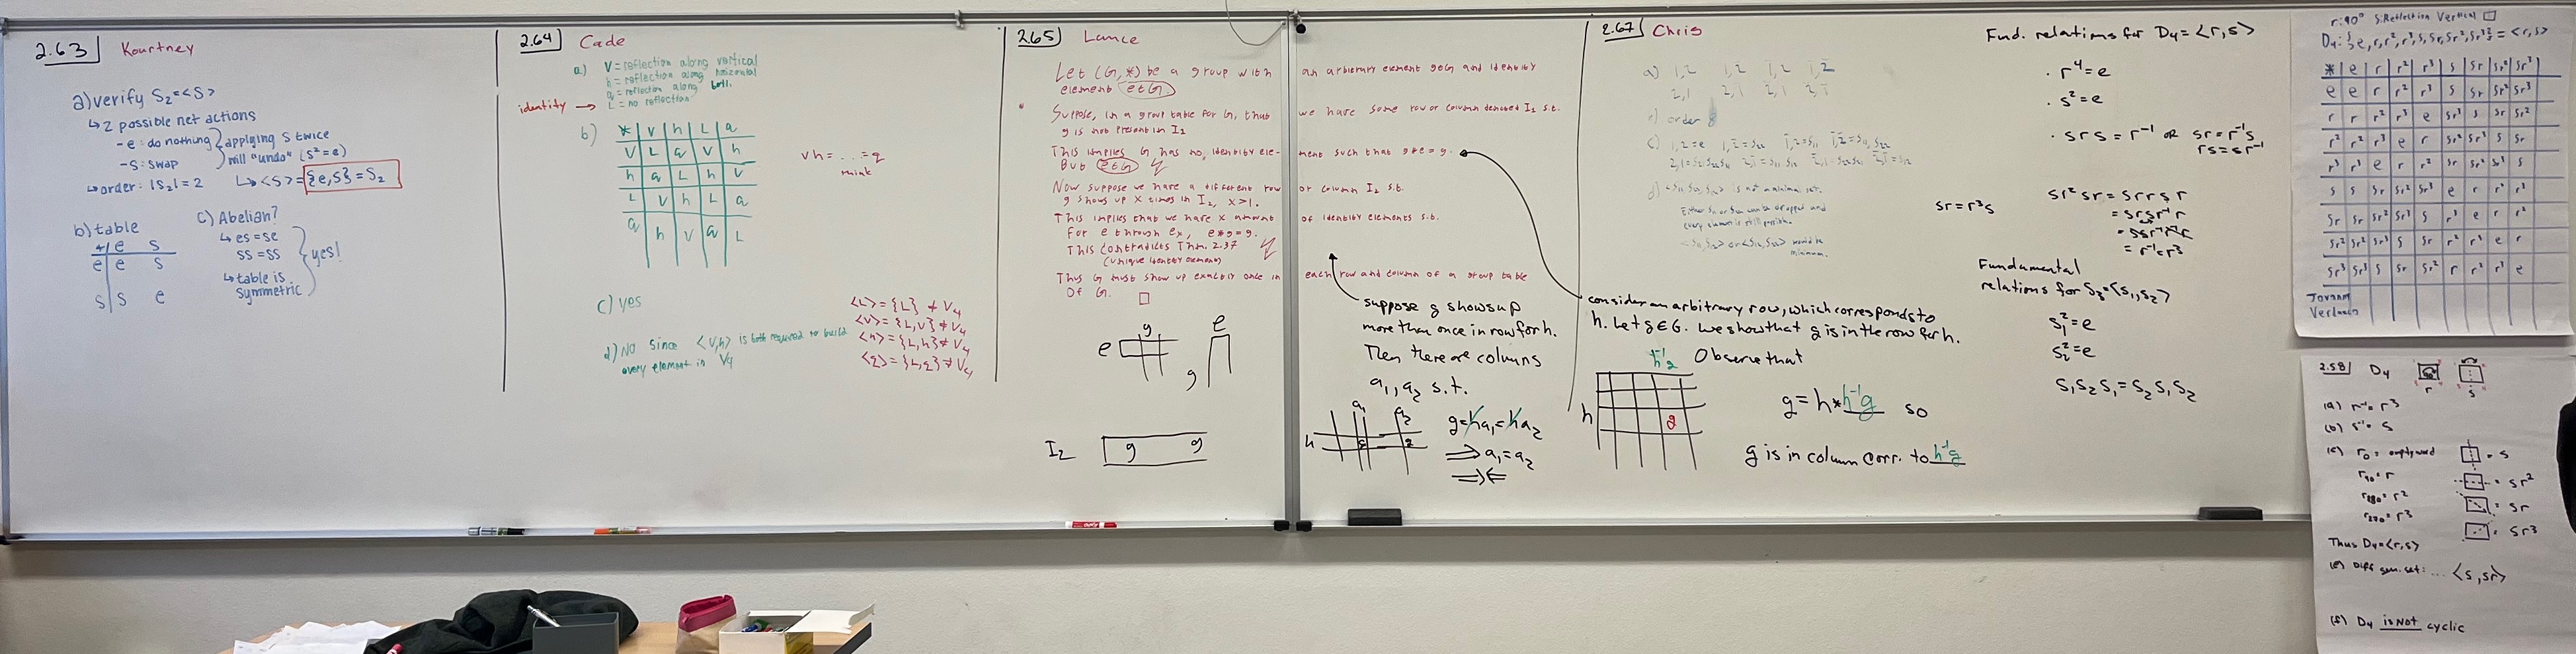 2.63 Kourtney
a) verify S₂=<S>
↳ 2 possible net actions
- e: do nothing } applying S twice
- S: swap } will "undo" (S²=e)
↳ order: |S₂|=2 ↳ <S>={e,S}=S₂
b) table
* e s
e e s
s s e
c) Abelian?
↳ es=se
ss=ss
↳ table is
symmetric } yes!
2.64 Cade
a) V=reflection along vertical
h=reflection along horizontal
q=reflection along both.
identity → L=no reflection
b)
* V h L q
V L q V h
h q L h V
L V h L q
q h V q L
vh=...=q
c) yes
d) No since <V,h> is both required to build
every element in V₄
<L>={L}≠V₄
<V>={L,V}≠V₄
<h>={L,h}≠V₄
<q>={L,q}≠V₄
2.65 Lance
Let (G,*) be a group with an arbitrary element g∈G and identity
element e∈G.
Suppose, in a group table for G, that we have some row or column denoted I₁ s.t.
g is not present in I₁
This implies G has no identity element such that g*e=g.
But e∈G
Now suppose we have a different row or column I₂ s.t.
g shows up x times in I₂, x>1.
This implies that we have x amount of identity elements s.t.
For e through eₓ, e*g=g.
This contradicts Thm. 2.37
(unique identity element)
Thus G must show up exactly once in each row and column of a group table
Of G. □
g
e
e
g
I₂ g g
suppose g shows up
more than once in row for h.
Then there are columns
a₁, a₂ s.t.
a₁ a₂
h g g
g=ha₁=ha₂
⟹ a₁=a₂
⇒⇐
2.67 Chris
a) 1,2
2,1
b) order 8
d) is not a minimal set.
Either can be dropped and
every element is still possible.
would be
minimum.
consider an arbitrary row, which corresponds to
h. Let g∈G. We show that g is in the row for h.
h⁻¹g Observe that
h g
g=h*h⁻¹g so
g is in column corr. to h⁻¹g
Fund. relations for D₄=<r,s>
· r⁴=e
· s²=e
· srs=r⁻¹ or sr=r⁻¹s
rs=sr⁻¹
sr=r³s
sr²sr=srrsr
=srsr⁻¹r
=ssr⁻¹r⁻¹r
=r⁻¹=r³
Fundamental
relations for S₃=<s₁,s₂>
s₁²=e
s₂²=e
s₁s₂s₁=s₂s₁s₂
r:90° S:Reflection Vertical
D₄:{e,r,r²,r³,s,sr,sr²,sr³}=<r,s>
* e r r² r³ s sr sr² sr³
e e r r² r³ s sr sr² sr³
r r r² r³ e sr³ s sr sr²
r² r² r³ e r sr² sr³ s sr
r³ r³ e r r² sr sr² sr³ s
s s sr sr² sr³ e r r² r³
sr sr sr² sr³ s r³ e r r²
sr² sr² sr³ s sr r² r³ e r
sr³ sr³ s sr sr² r r² r³ e
2.58 D₄ r s
(a) r⁻¹=r³
(b) s⁻¹=s
(c) r₀=empty word =s
r₉₀=r =sr²
r₁₈₀=r² =sr
r₂₇₀=r³ =sr³
Thus D₄=<r,s>
(e) Diff gen. set: ... <s,sr>
(f) D₄ is not cyclic